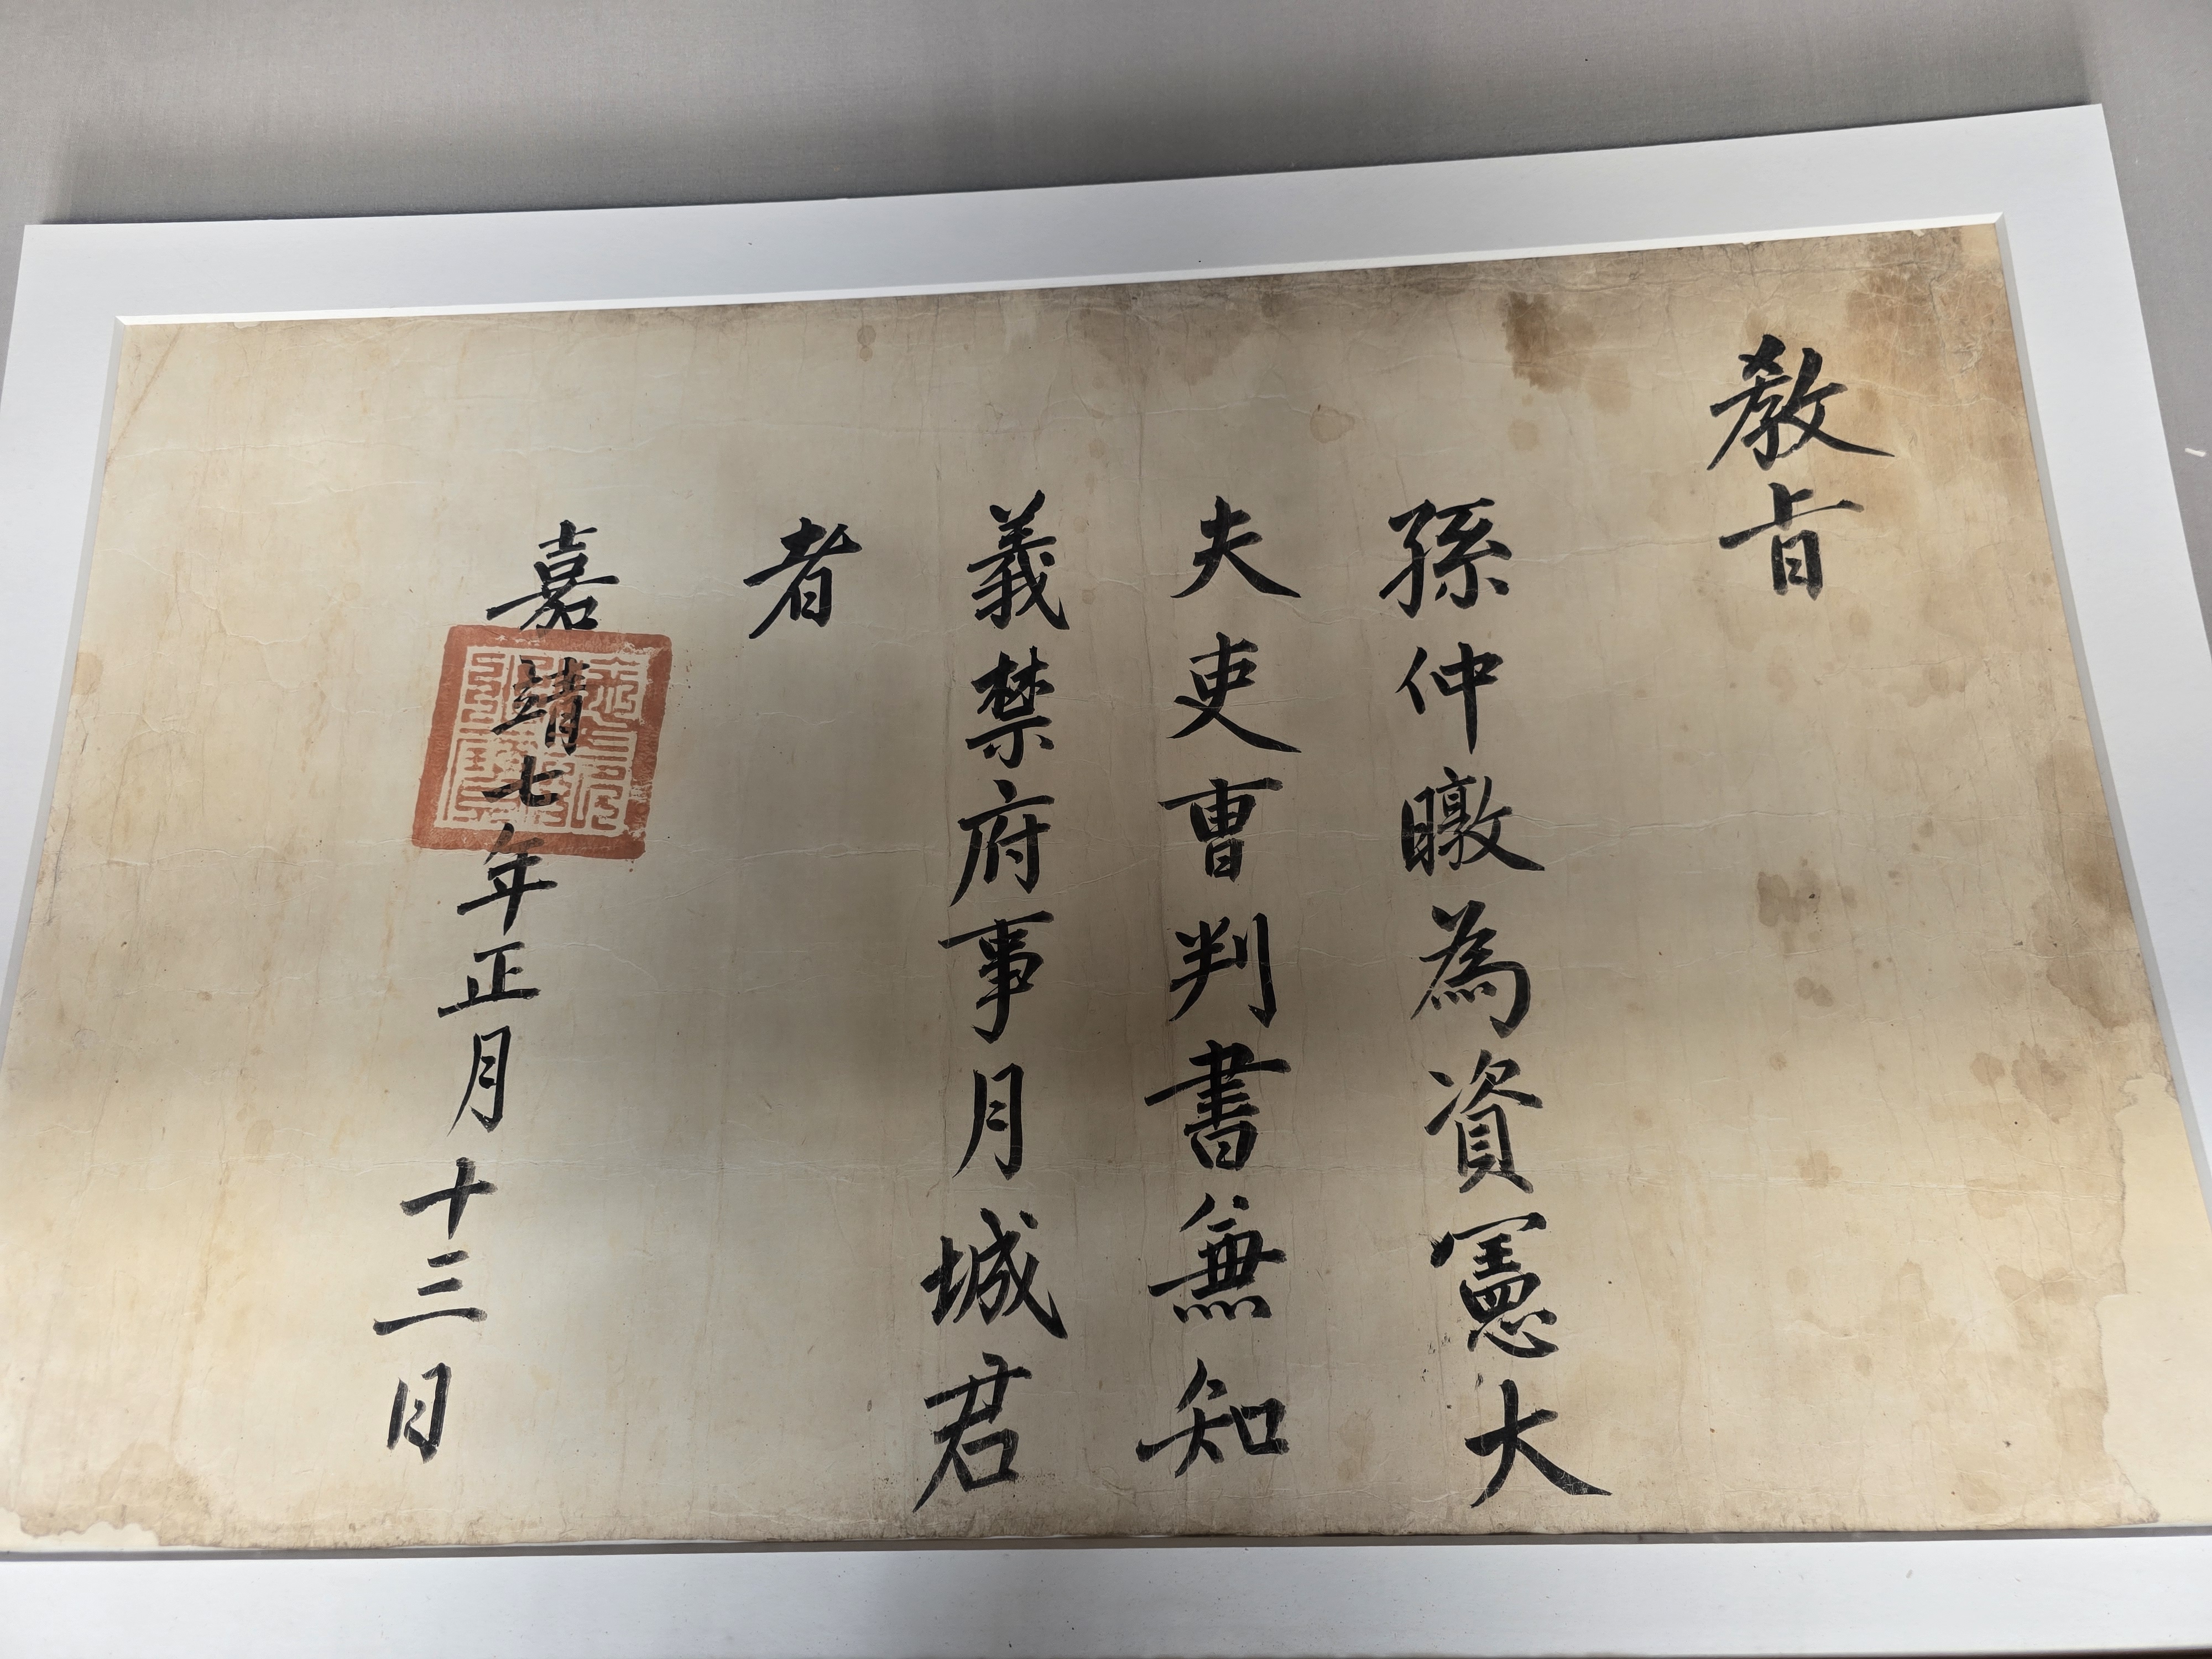 敎旨
孫仲暾為資憲大
夫吏曹判書兼知
義禁府事月城君
者
嘉靖七年正月十三日